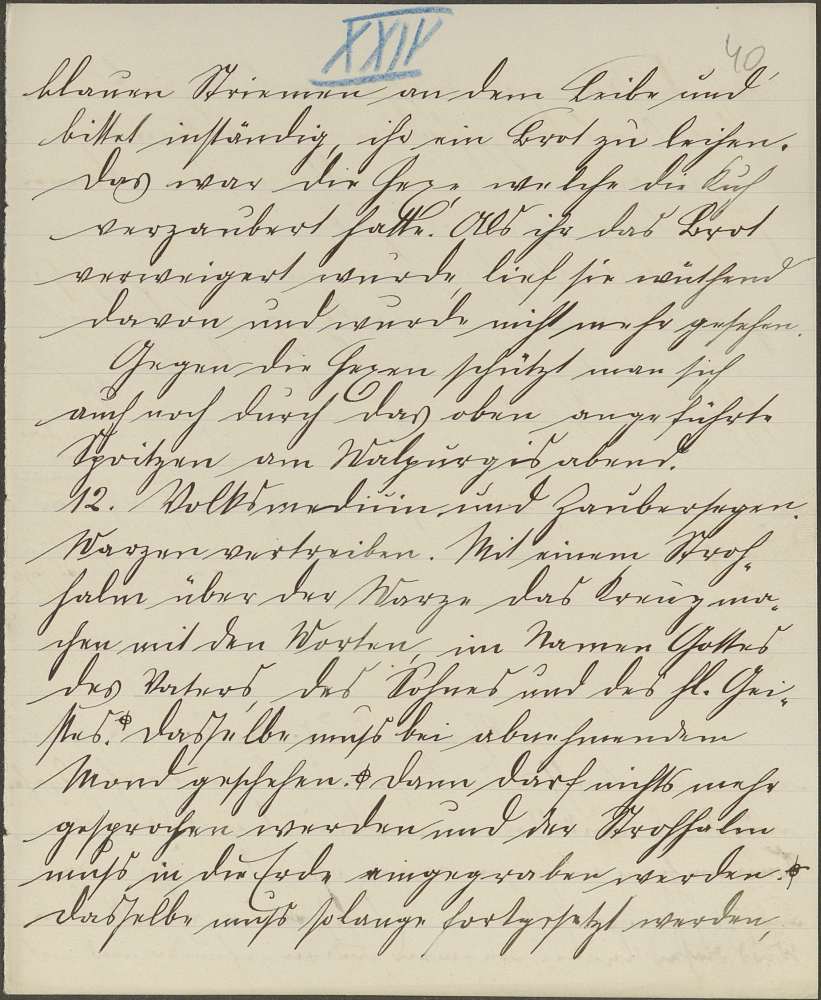 XXIV
40
blauen Striemen an dem Leibe und
bittet inständig, ihr ein Brot zu leihen.
Das war die Hexe, welche die Kuh
verzaubert hatte. Als ihr das Brot
verweigert wurde, lief sie wüthend
davon und wurde nicht mehr gesehen.
Gegen die Hexen schützt man sich
auch noch durch das oben angeführte
Spritzen am Walpurgisabend.
12. Volksmedizin und Zaubersegen.
Warzen vertreiben. Mit einem Stroh-
halm über der Warze das Kreuz ma-
chen mit den Worten, im Namen Gottes
des Vaters, des Sohnes und des hl. Gei-
stes. Dasselbe muss bei abnehmendem
Mond geschehen. Dann darf nichts mehr
gesprochen werden und der Strohhalm
muss in die Erde eingegraben werden.
Dasselbe muss solange fortgesetzt werden,